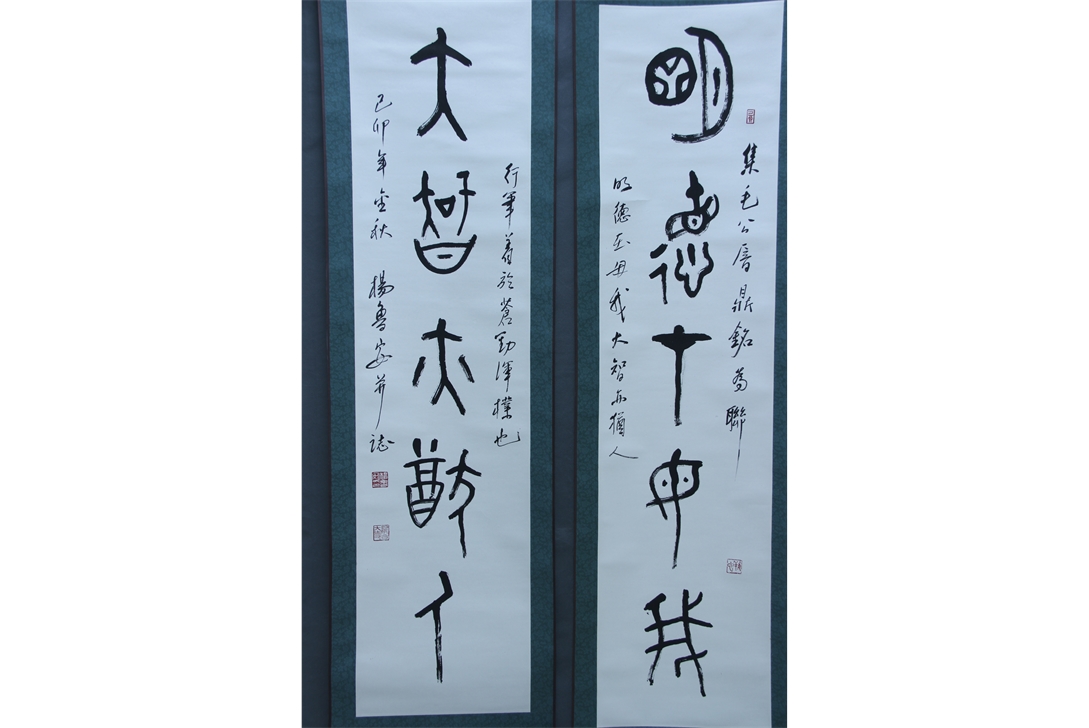 集毛公厝鼎銘為聯
明德在毋我
明德在毋我大智亦猶人
行筆着於蒼勁渾樸也
大智亦猶人
己卯年金秋 楊魯安并誌